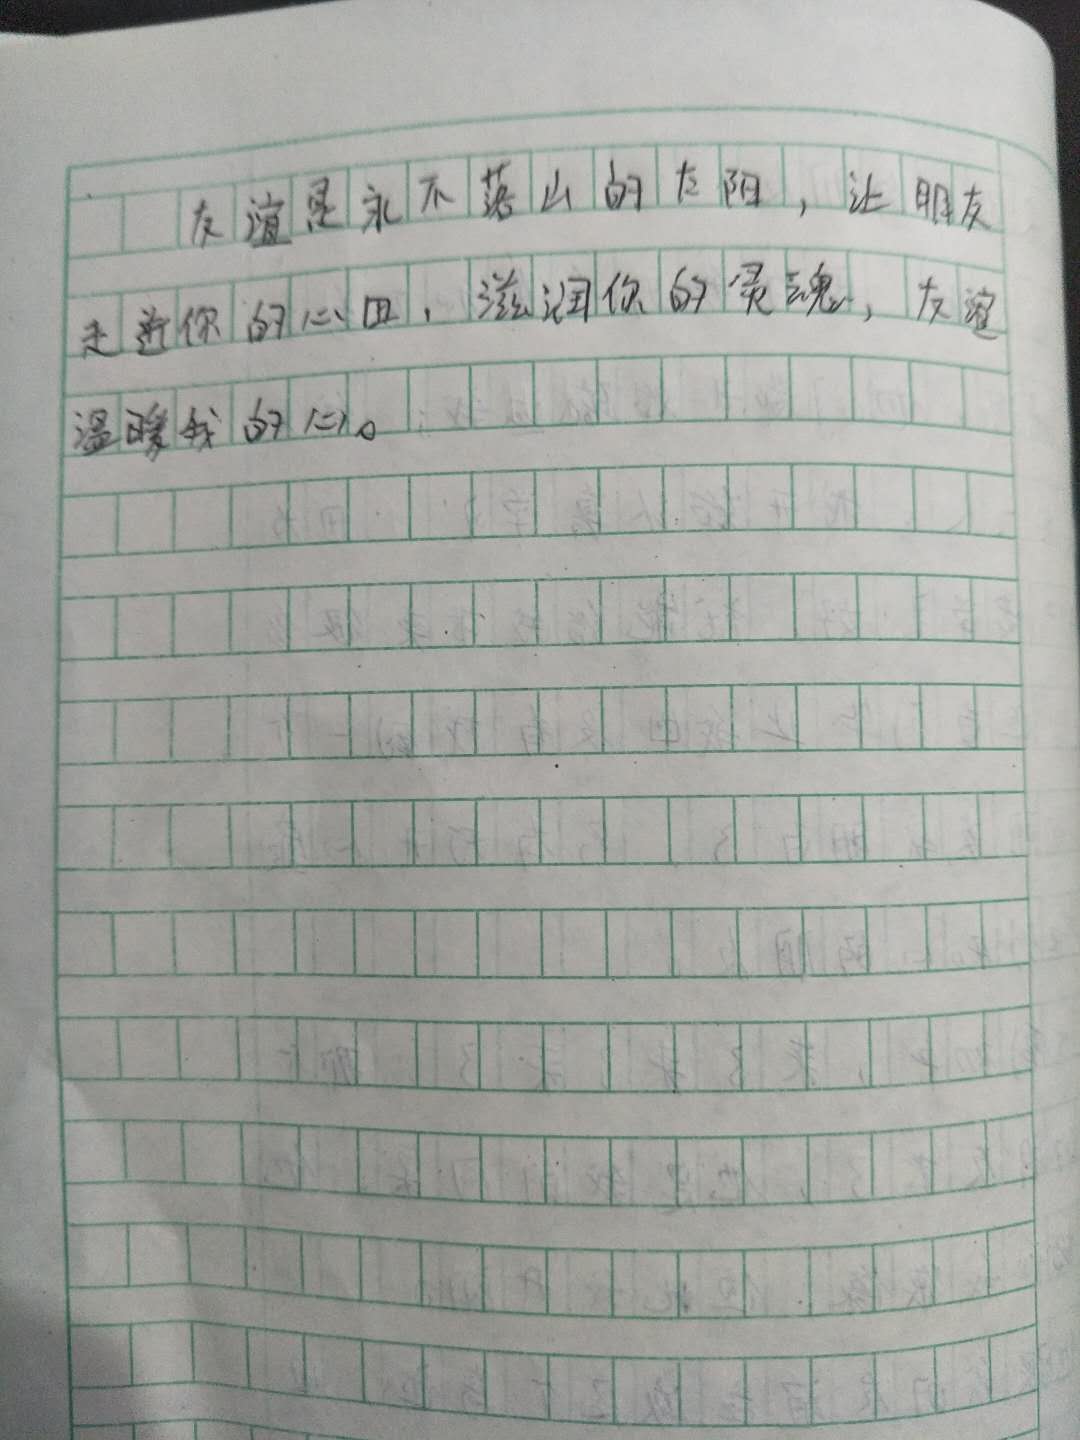 友谊是永不落山的太阳，让朋友
走进你的心田，滋润你的灵魂，友谊
温暖我的心。